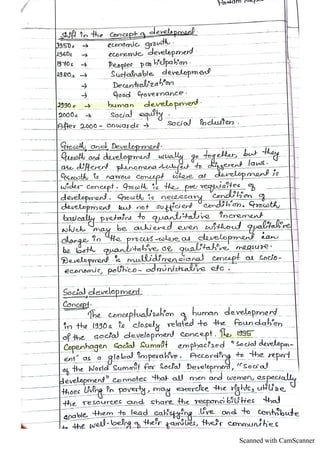 Shift in the concept of development
1950s → economic growth.
1960s → economic development
1970s → Peoples participation
1980s → Sustainable development
→ Decentralization
→ Good Governance.
1990s → human development.
2000s → Social equity.
After 2000 - onwards → social inclusion.
Growth and Development.
Growth and development usually go together, but they
are different phenomena subject to different laws.
Growth is narrow concept where as development is
wider concept. Growth is the pre-requisites of
development. Growth is necessary condition of
development but not sufficient condition. Growth
basically pretains to quantitative increment
which may be achieved even without qualitative
change in the process where as development can
be both quantitative or qualitative measure.
Development is multidimensional concept as socio-
economic, politico-administrative etc.
Social development.
Concept.
The conceptualization of human development
in the 1990s is closely related to the foundation
of the social development concept. The 1995
Copenhagen Social Summit emphasised "social developm-
ent' as a global imperative. According to the report
of the World Summit for Social Development, "social
development" connotes that all men and women, especially
those living in poverty, may exercise the rights, utilize
the resources and share the responsibilities that
enable them to lead satisfying live and to contribute
to the well-being of their families, their communities
Scanned with CamScanner